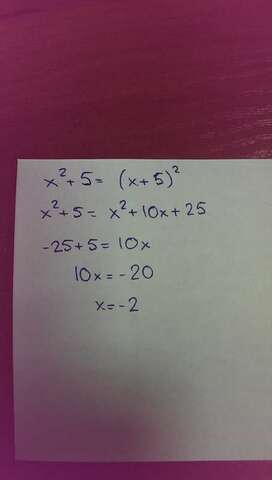 x² + 5 = (x + 5)²
x² + 5 = x² + 10x + 25
-25 + 5 = 10x
10x = -20
x = -2